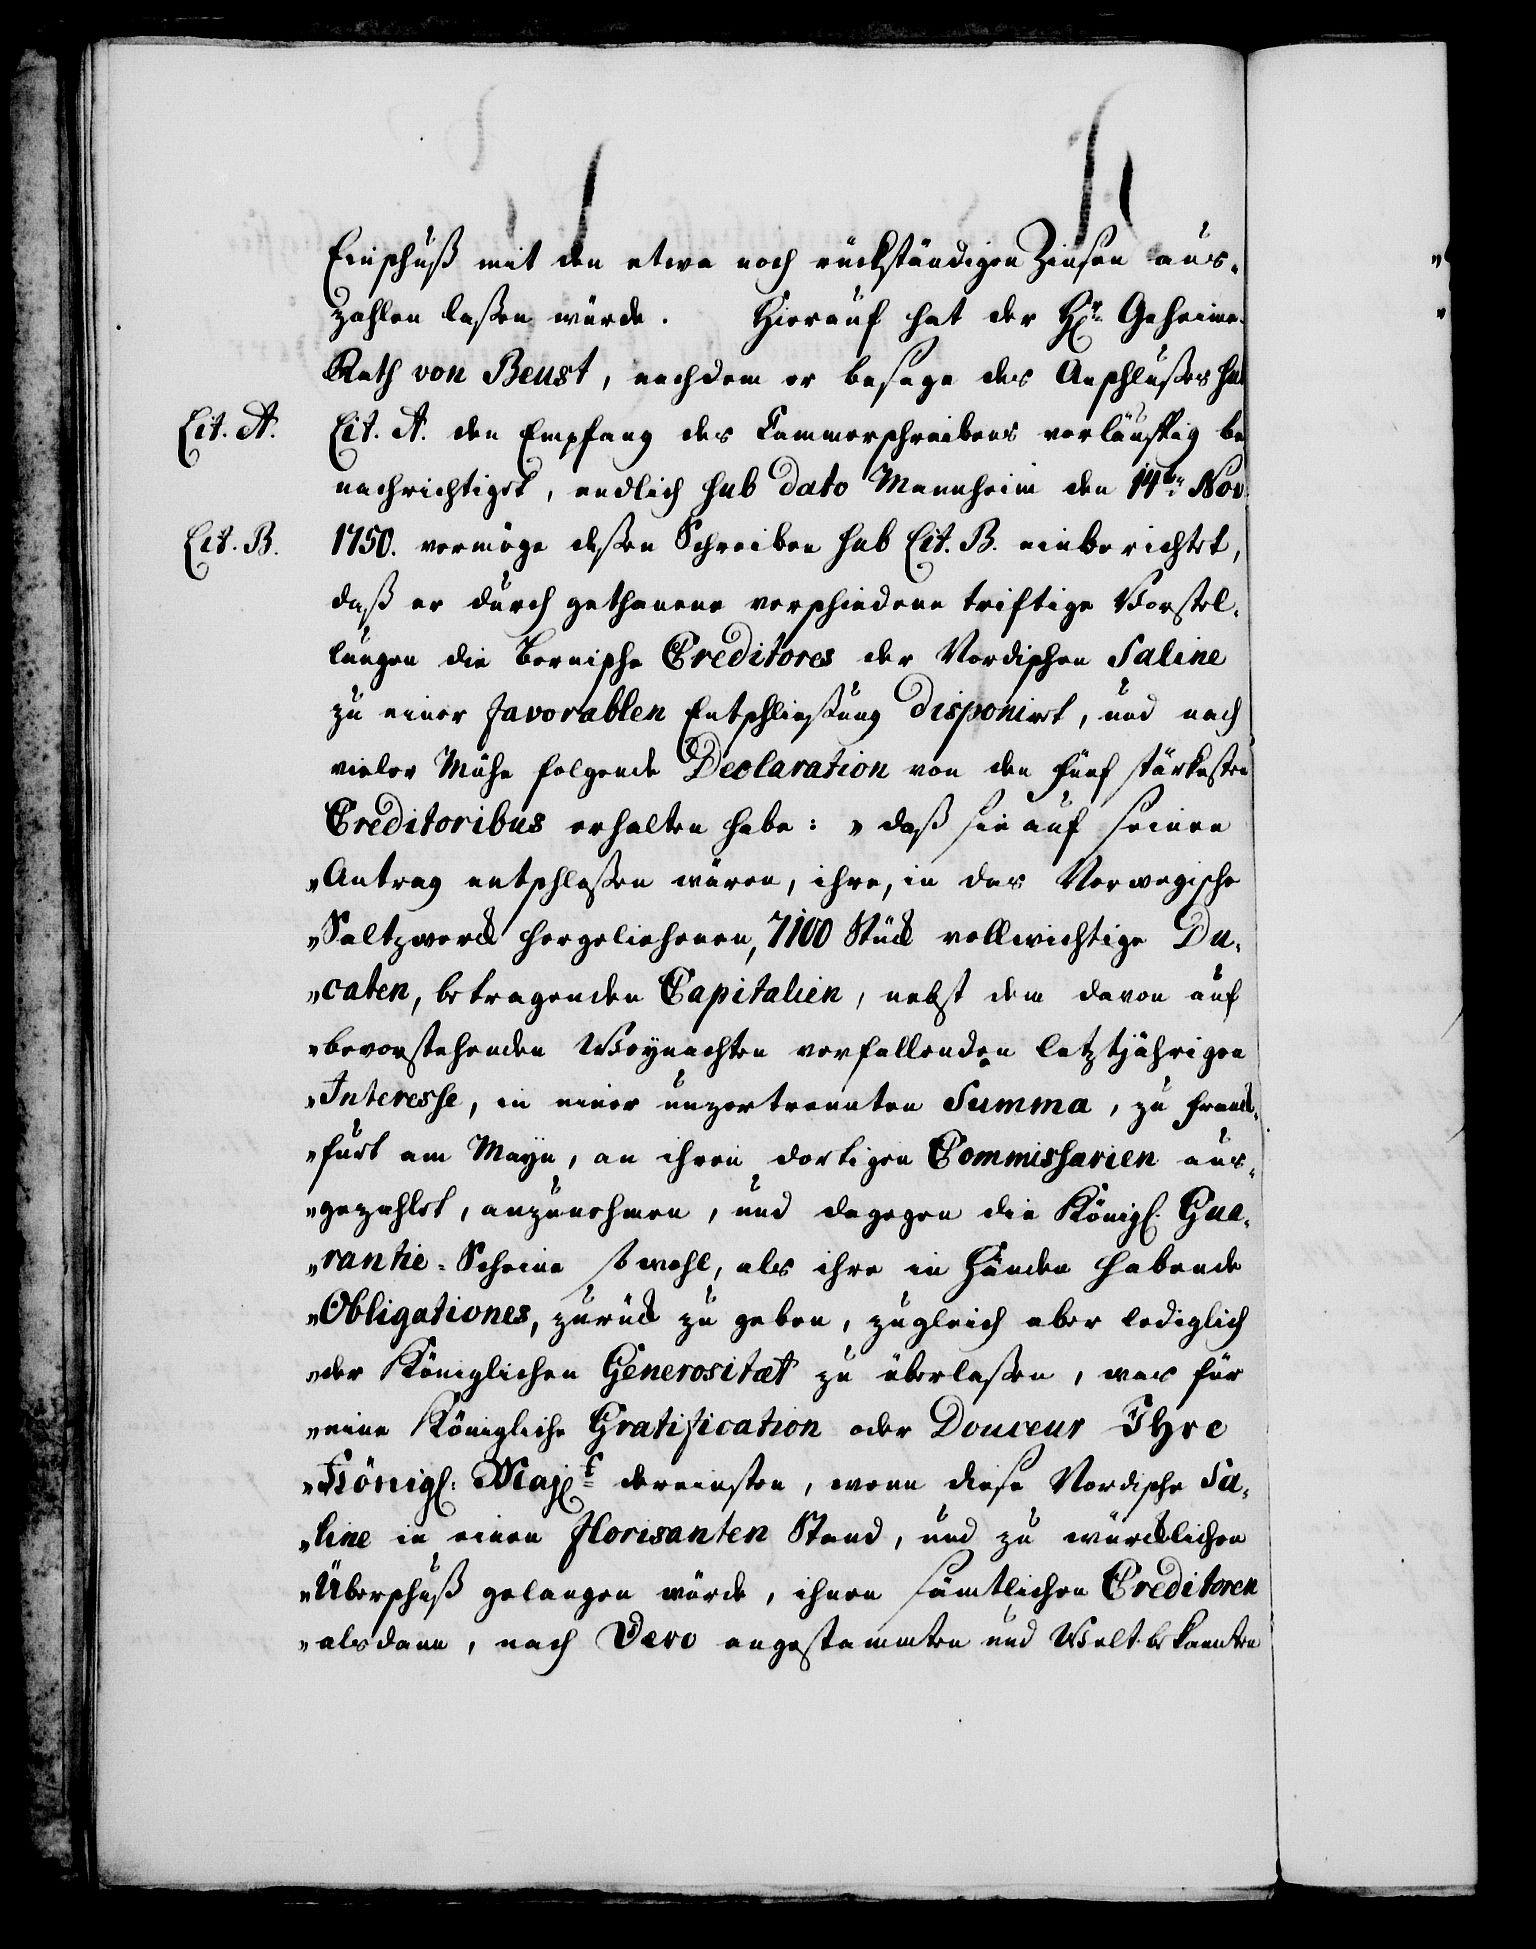 Einschuß mit den etwa noch rückständigen Zinsen aus-
zahlen laßen würde. Hierauf hat der Hr. Geheime-
Rath von Beust, nachdem er besage des Anschlußes sub
Lit. A. Lit. A. den Empfang des Cammerschreibens vorläuffig be
nachrichtiget, endlich sub dato Mannheim den 14ten Nov.
Lit. B. 1750. vermöge deßen Schreiben sub Lit. B. einberichtet,
daß er durch gethanene verschiedene triftige Vorstel-
lungen die Bernische Creditores der Nordischen Saline
zu einer favorablen Entschließung disponirt, und nach
vieler Mühe folgende Declaration von den fünf stärkesten
Creditoribus erhalten habe: „daß sie auf seinen
„Antrag entschloßen wären, ihre, in das Norwegische
„Saltzwerck hergeliehenen, 7100 Stück vollwichtige Du-
„caten, betragenden Capitalien, nebst dem davon auf
„bevorstehenden Weynachten verfallenden letztjährigen
„Interesse, in einer unzertrennten Summa, zu Franck-
„furt am Mayn, an ihren dortigen Commissarien aus-
„gezahlet, anzunehmen, und dagegen die Königl. Gua-
„rantie-Scheine so wohl, als ihre in Händen habende
„Obligationes, zurück zu geben, zugleich aber lediglich
„der Königlichen Generositæt zu überlaßen, was für
„eine Königliche Gratification oder Douceur Ihre
„Königl: Majt. dereinsten, wenn diese Nordische Sa-
„line in einen florisanten Stand, und zu würcklichen
„Überschuß gelangen würde, ihnen sämtlichen Creditoren
„alsdann, nach Dero angestammten und Welt-bekannten